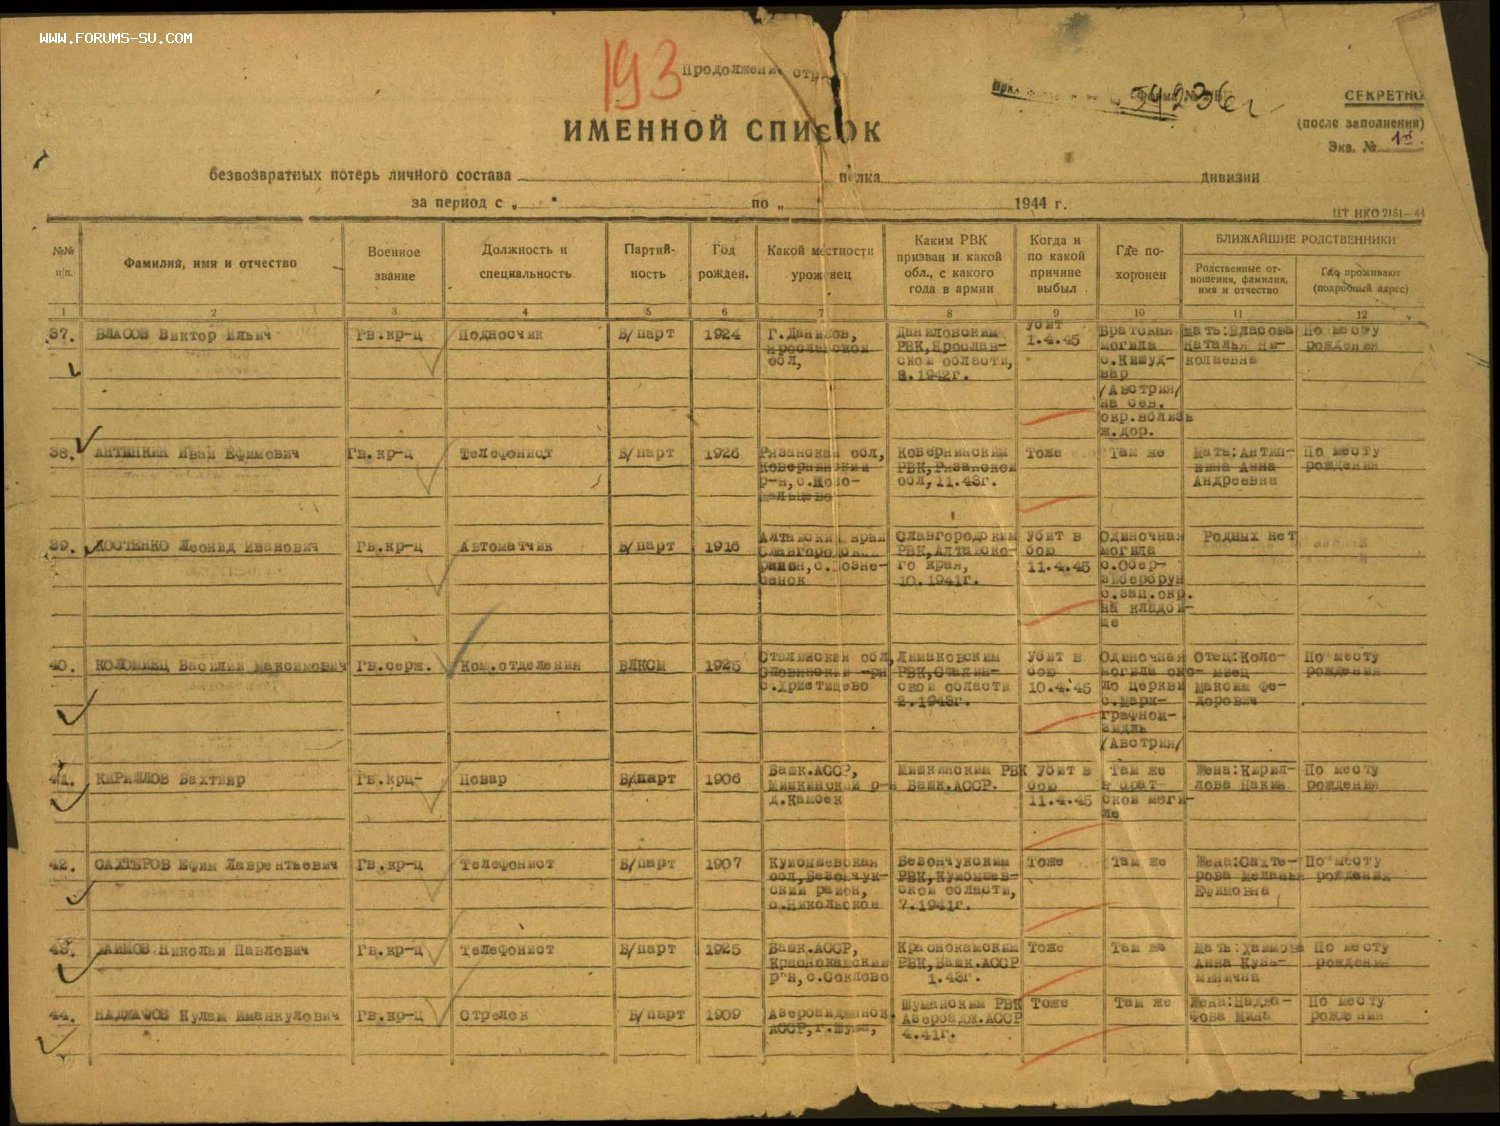 WWW.FORUMS-SU.COM
193
Продолжение стр.
Форма №
СЕКРЕТНО
(после заполнения)
Экз. № 1й
ИМЕННОЙ СПИСОК
безвозвратных потерь личного состава полка дивизии
за период с „ “ по „ “ 1944 г.
ЦТ НКО 2151—44
№№ п/п.
Фамилия, имя и отчество
Военное звание
Должность и специальность
Партий-
ность
Год рожден.
Какой местности уроженец
Каким РВК призван и какой обл., с какого года в армии
Когда и по какой причине выбыл
Где по-
хоронен
БЛИЖАЙШИЕ РОДСТВЕННИКИ
Родственные от-
ношения, фамилия, имя и отчество
Где проживают (подробный адрес)
1 2 3 4 5 6 7 8 9 10 11 12
37. ВЛАСОВ Виктор Ильич Гв.кр-ц Подносчик Б/парт 1924 Г.Данилов, Ярославской обл, Даниловским РВК,Ярослав-
ской области, 8.1942г. Убит 1.4.45 Братская могила с.Кишуд-
вар /Австрия/ на сев. окр.вблизь ж.дор. Мать:Власова Наталья Ни-
колаевна По месту рождения
38. АНТИПКИН Иван Ефимович Гв.кр-ц Телефонист Б/парт 1926 Рязанская обл, Ковернинский р-н, с.Ново-
Ковернинским РВК,Рязанской обл,11.43г. Тоже Там же Мать:Антип-
кина Анна Андреевна По месту рождения
39. КОСТЕНКО Леонид Иванович Гв.кр-ц Автоматчик Б/парт 1916 Алтайский край Славгородский район,с.Возне-
сенск Славгородским РВК,Алтайско-
го края, 10.1941г. Убит в бою 11.4.45 Одиночная могила с.Обер-
с.зап.окр. на кладби-
ще Родных нет
40. КОЛОМИЕЦ Василий Максимович Гв.серж. Ком.отделения ВЛКСМ 1925 Сталинская обл, Славянский р-н с.Христищево Лимановским РВК,Сталин-
ской области 2.1943г. Убит в бою 10.4.45 Одиночная могила око-
ло церкви с.Марк-
графной-
зидль /Австрия/ Отец:Коло-
миец Максим Фе-
дорович По месту рождения
41. КИРИЛЛОВ Бахтияр Гв.крц- Повар Б/парт 1906 Башк.АССР, Мишкинский р-н д.Камеек Мишкинским РВК Башк.АССР. Убит в бою 11.4.45 Там же в брат-
ской моги-
ле Жена:Кирил-
лова Накия По месту рождения
42. САХТЕРОВ Ефим Лаврентьевич Гв.кр-ц Телефонист Б/парт 1907 Куйбышевская обл,Безенчук-
ский район, с.Никольское Безенчукским РВК,Куйбышев-
ской области, 7.1941г. Тоже Там же Жена:Сахте-
рова Меланья Ефимовна По месту рождения
43. ХАИМОВ Николай Павлович Гв.кр-ц Телефонист Б/парт 1925 Башк.АССР, Краснокамский р-н, с.Саклово Краснокамским РВК,Башк.АССР 1.43г. Тоже Там же Мать:Хаимова Анна Кузь-
минична По месту рождения
44. НАДЖАФОВ Кулам Иманкулович Гв.кр-ц Стрелок Б/парт 1909 Азербайджанск. АССР,г.Шуша, Шушанским РВК Азербайдж.АССР 4.41г. Тоже Там же Жена:Наджа-
фова Мина По месту рождения